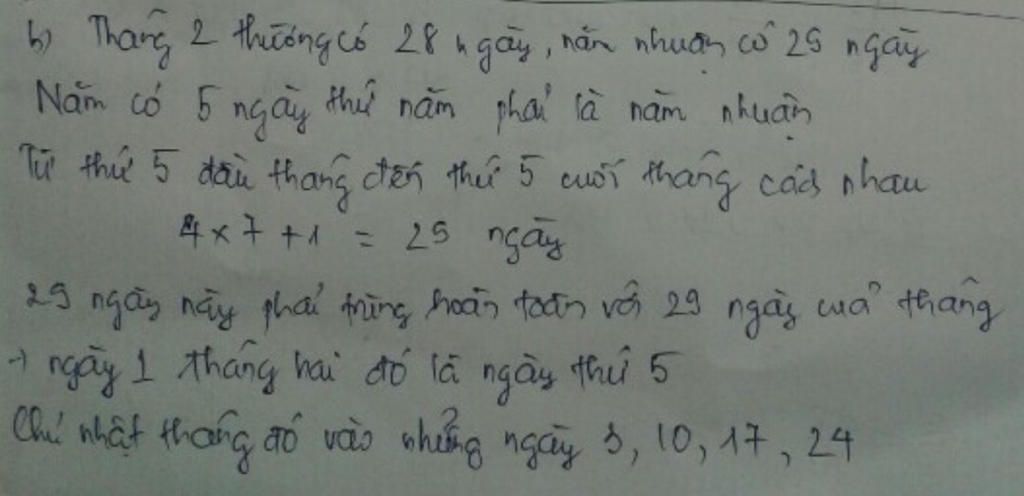 b) Tháng 2 thường có 28 ngày, năm nhuận có 29 ngày
Năm có 5 ngày thứ năm phải là năm nhuận
Từ thứ 5 đầu tháng đến thứ 5 cuối tháng cách nhau
4 x 7 + 1 = 29 ngày
29 ngày này phải trùng hoàn toàn với 29 ngày của tháng
→ ngày 1 tháng hai đó là ngày thứ 5
Chủ nhật tháng đó vào những ngày 3, 10, 17, 24